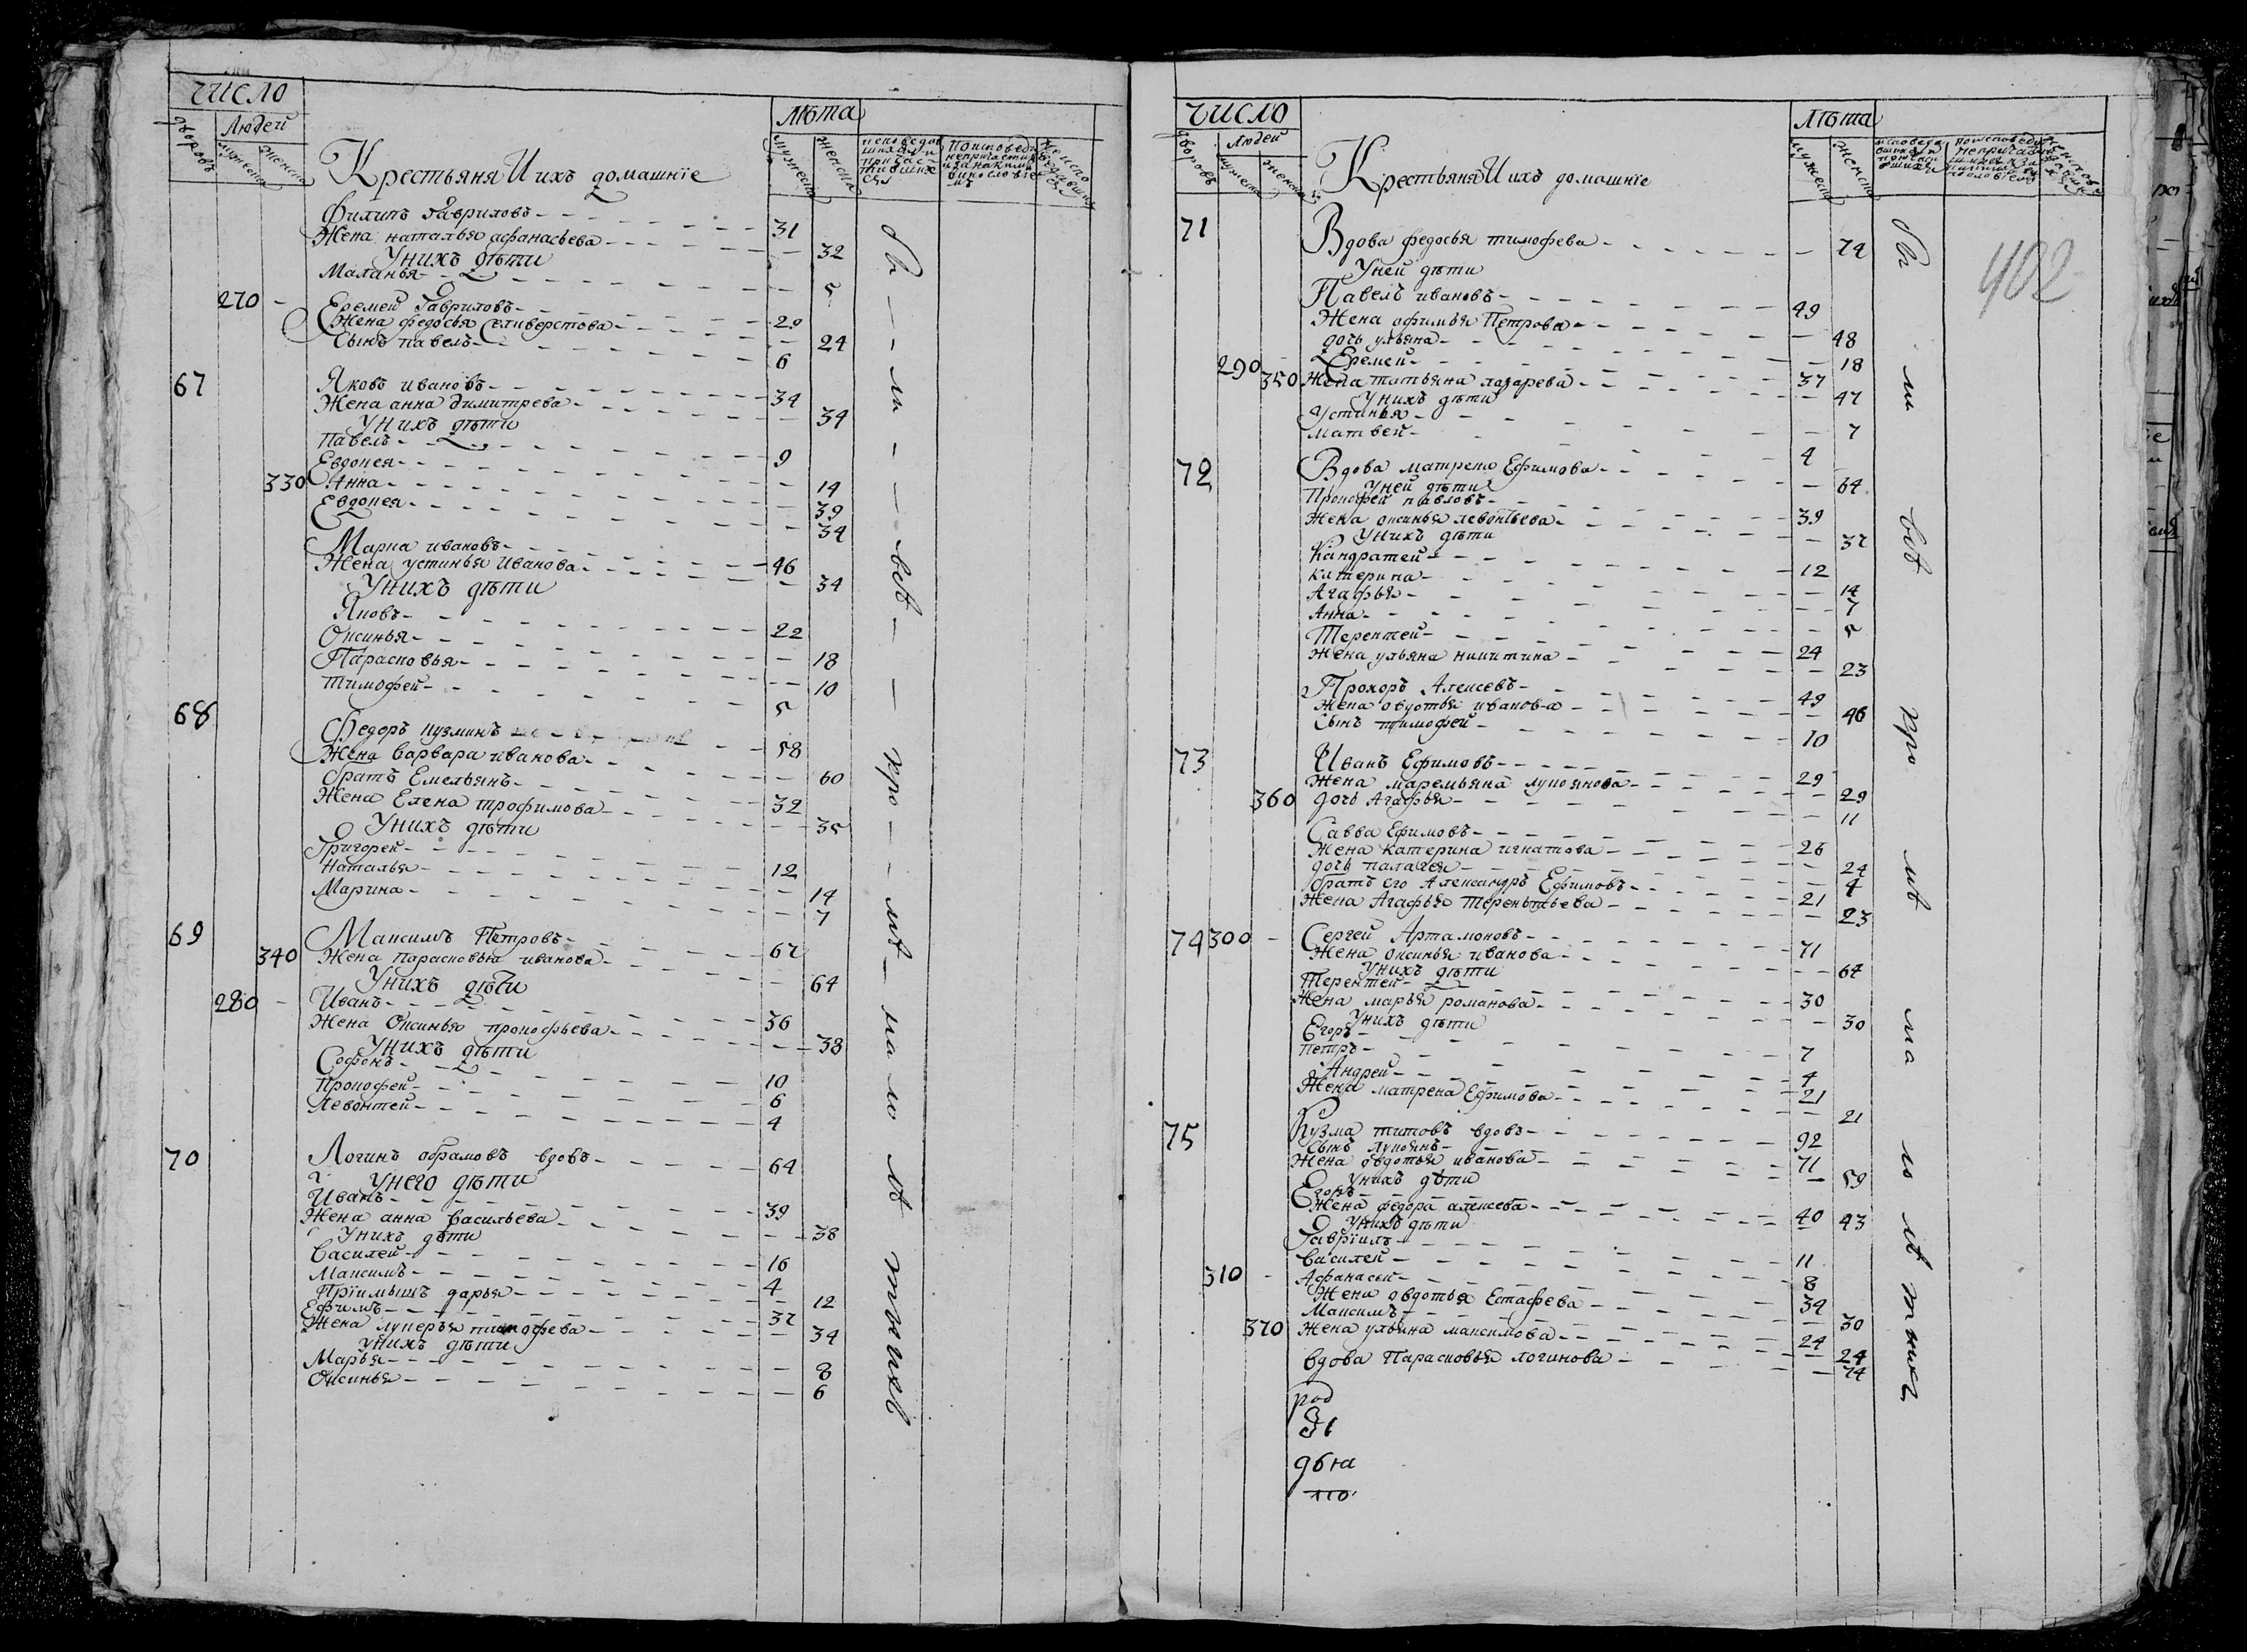 число
Людей
лѣта
дворовъ
мужеска
женска
Крестьяня И ихъ домашнїе
мужеска
женска
Филипъ Гавриловъ 31
Жена наталья афанасьева 32
У нихъ дѣти
Маланья 5
270 Еремей Гавриловъ 29
Жена федосья Селиверстова 24
Сынъ павелъ 6
67 Яковъ ивановъ 34
Жена анна димитрева 34
У нихъ дѣти
Павелъ 9
Евдокея 14
330 Анна 39
Евдокея 34
Марка ивановъ 46
Жена устинья иванова 34
У нихъ дѣти
Яковъ 22
Оксинья 18
Парасковья 10
Тимофей 5
68 Федоръ кузминъ 58
Жена варвара иванова 60
братъ Емельянъ 32
Жена Елена трофимова 35
У нихъ дѣти
Григорей 12
Наталья 14
Марина 7
69 Максимъ Петровъ 67
340 Жена парасковья иванова 64
У нихъ дѣти
280 Иванъ 36
Жена Оксинья прокофьева 38
У нихъ дѣти
Софонъ 10
Прокофей 6
Левонтей 4
70 Логинъ абрамовъ вдовъ 64
У него дѣти
Иванъ 39
Жена анна васильева 38
У нихъ дѣти
Василей 16
Максимъ 4
Прїимышъ дарья 12
Ефимъ 37
Жена лукерья тимофева 34
У нихъ дѣти
Марья 8
Оксинья 6
число
Людей
лѣта
дворовъ
мужеска
женска
Крестьяня И ихъ домашнїе
мужеска
женска
402
71 Вдова федосья тимофева 74
У ней дѣти
Павелъ ивановъ 49
Жена офимья Петрова 48
дочь ульяна 18
290 Еремей 37
350 Жена татьяна лазарева 47
У нихъ дѣти
Устинья 7
Матвей 4
72 Вдова матрена Ефимова 64
У ней дѣти
Прокофей павловъ 39
Жена оксинья левонтьева 37
У нихъ дѣти
Кандратей 12
Катерина 14
Агафья 7
Анна 5
Терентей 24
Жена ульяна никитина 23
Прохоръ Алексевъ 49
Жена овдотья иванова 46
Сынъ тимофей 10
73 Иванъ Ефимовъ 29
Жена маремьяна лукоянова 29
360 дочь Агафья 11
Савва Ефимовъ 26
Жена Катерина игнатова 24
дочь палагея 4
братъ его Александръ Ефимовъ 21
Жена Агафья терентьева 23
74 300 Сергей Артамоновъ 71
Жена оксинья иванова 64
У нихъ дѣти
Терентей 30
Жена марья романова 30
У нихъ дѣти
Егоръ 7
Петръ 4
Андрей 21
Жена матрена Ефимова 21
75 Кузма титовъ вдовъ 92
Сынъ лукоянъ 71
Жена овдотья иванова 59
У нихъ дѣти
Егоръ 40
Жена федора алексева 43
У нихъ дѣти
Гаврїилъ 11
Василей 8
310 Афанасей 34
Жена овдотья Естафева 30
Максимъ 24
370 Жена ульяна максимова 24
вдова Парасковья логинова 74